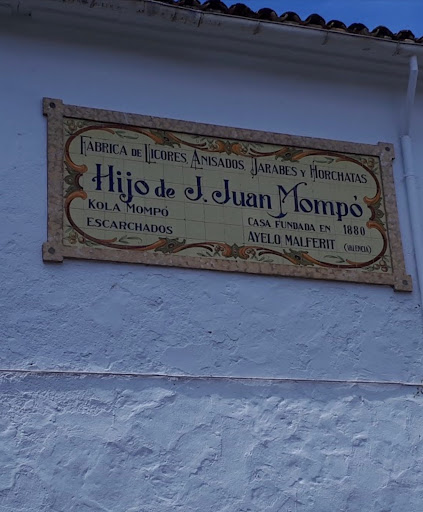 FÁBRICA DE LICORES, ANISADOS, JARABES Y HORCHATAS
Hijo de J. Juan Mompó
KOLA MOMPÓ
ESCARCHADOS
CASA FUNDADA EN 1880
AYELO MALFERIT (VALENCIA)